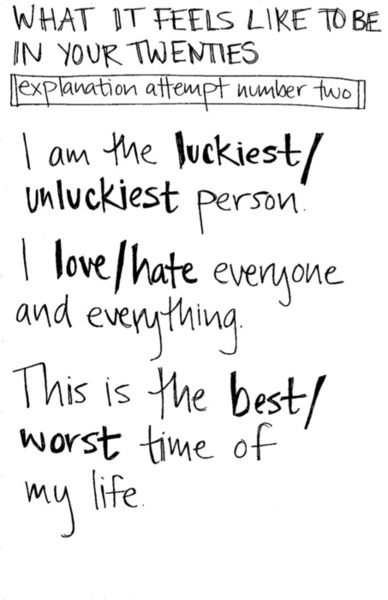 WHAT IT FEELS LIKE TO BE
IN YOUR TWENTIES
explanation attempt number two
I am the luckiest/
unluckiest person.
I love/hate everyone
and everything.
This is the best/
worst time of
my life.